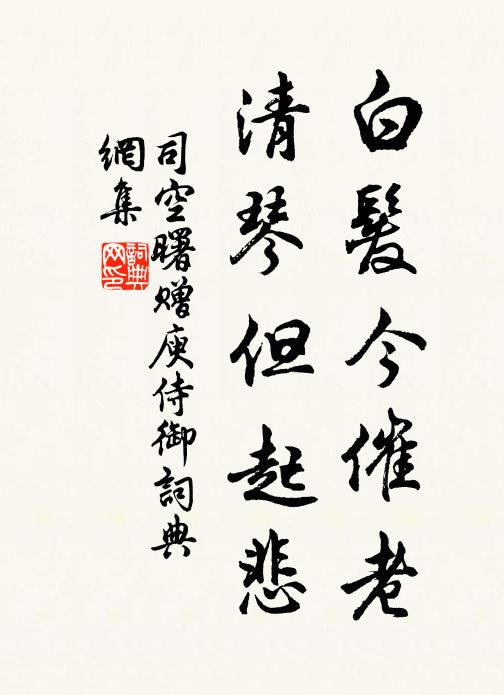 白髮今催老
清琴但起悲
司空曙贈庾侍御詞典
網集
詞典
网印